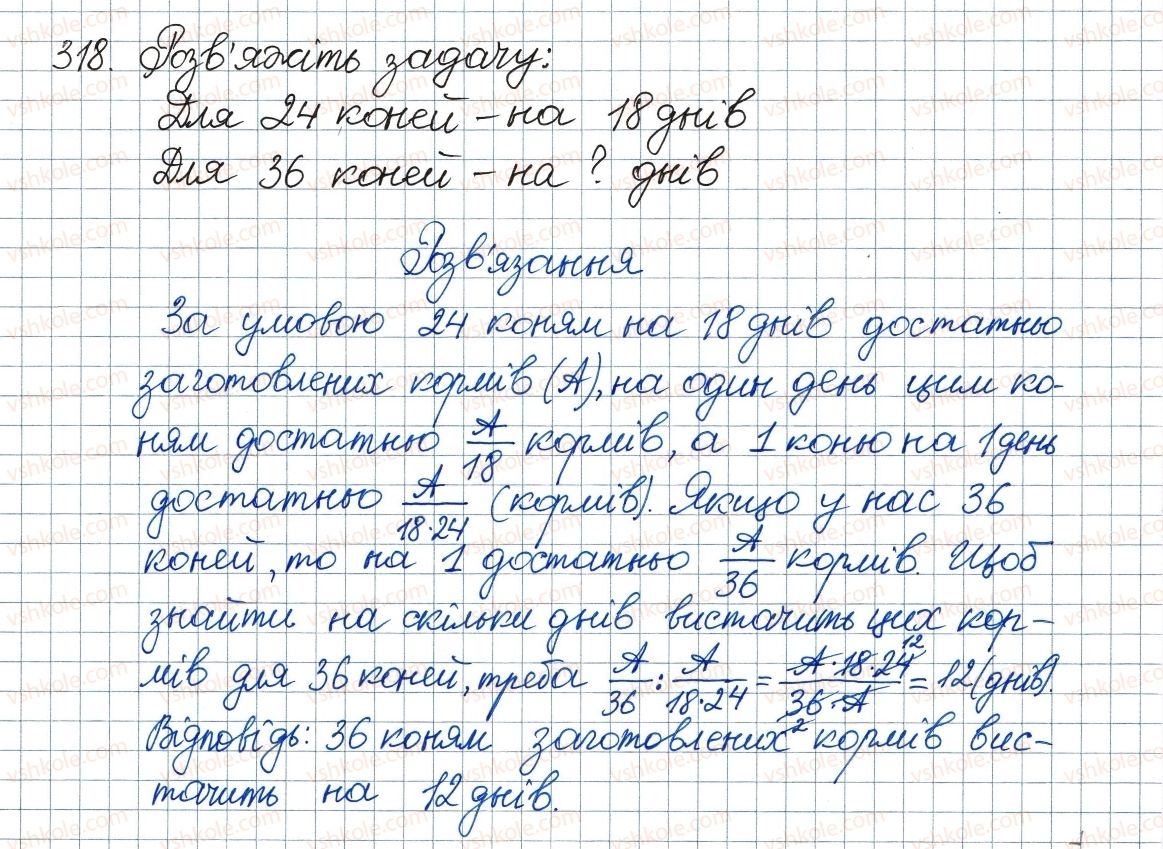 318. Розв'яжіть задачу:
Для 24 коней – на 18 днів
Для 36 коней – на ? днів
Розв'язання
За умовою 24 коням на 18 днів достатньо
заготовлених кормів (А), на один день цим ко-
ням достатньо А/18 кормів, а 1 коню на 1 день
достатньо А/18·24 (кормів). Якщо у нас 36
коней, то на 1 достатньо А/36 кормів. Щоб
знайти на скільки днів вистачить цих кор-
мів для 36 коней, треба А/36 : А/18·24 = А·18·24 12/36·А 2 = 12 (днів).
Відповідь: 36 коням заготовлених кормів вис-
тачить на 12 днів.